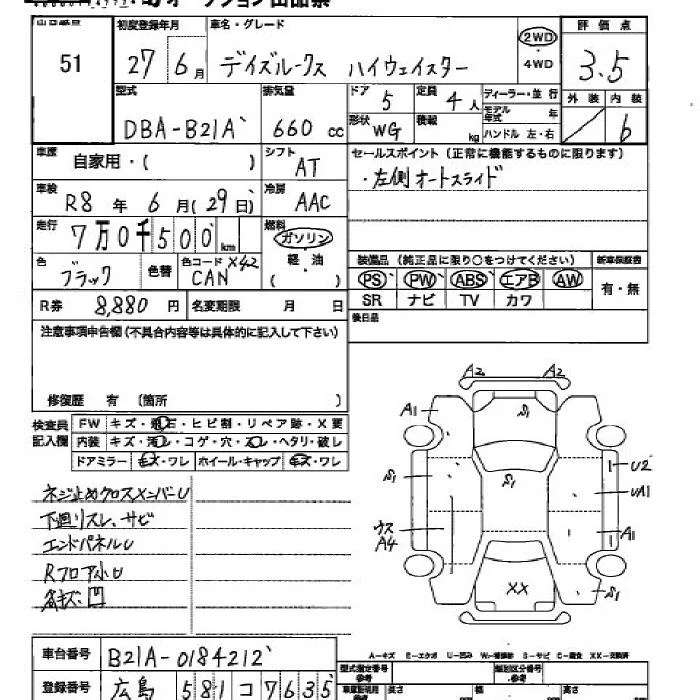 オークション出品票
出品番号 初度登録年月 車名・グレード 2WD・4WD 評価点
51 27年6月 デイズルークス ハイウェイスター 3.5
型式 排気量 ドア 5 定員 4人 ディーラー・並行 外装 内装
DBA-B21A 660cc 形状 WG 積載 kg モデル年式 年 ハンドル 左・右 6
車歴 自家用・( ) シフト AT セールスポイント(正常に機能するものに限ります)
車検 R8年 6月(29日) 冷房 AAC ・左側オートスライド
走行 7万0千500km 燃料 ガソリン 軽・油 ( )
色 ブラック 色替 色コード X42 CAN 装備品(純正品に限り○をつけてください) 新車保証書
PS PW ABS エアB AW 有・無
R券 8,880円 名変期限 月 日 SR ナビ TV カワ
注意事項申告欄(不具合内容等は具体的に記入して下さい) 後日品
修復歴 有 (箇所 )
検査員記入欄 FW キズ・飛石・ヒビ割・リペア跡・X要
内装 キズ・汚レ・コゲ・穴・スレ・ヘタリ・破レ
ドアミラー キズ・ワレ ホイール・キャップ キズ・ワレ
ネジ止めクロスメンバーU
下廻リスレ、サビ
エンドパネルU
Rフロア小U
各キズ・凹
A2 A2
A1 S1
S1 S1 U2
UA1
ウス A4 A1
XX S1
A-キズ E-エクボ U-凹み W-補修跡 S-サビ C-腐食 XX-交換済
車台番号 B21A-0184212
型式指定番号 参考 類別区分番号 参考
登録番号 広島 581 コ 7635
長さ 幅 高さ